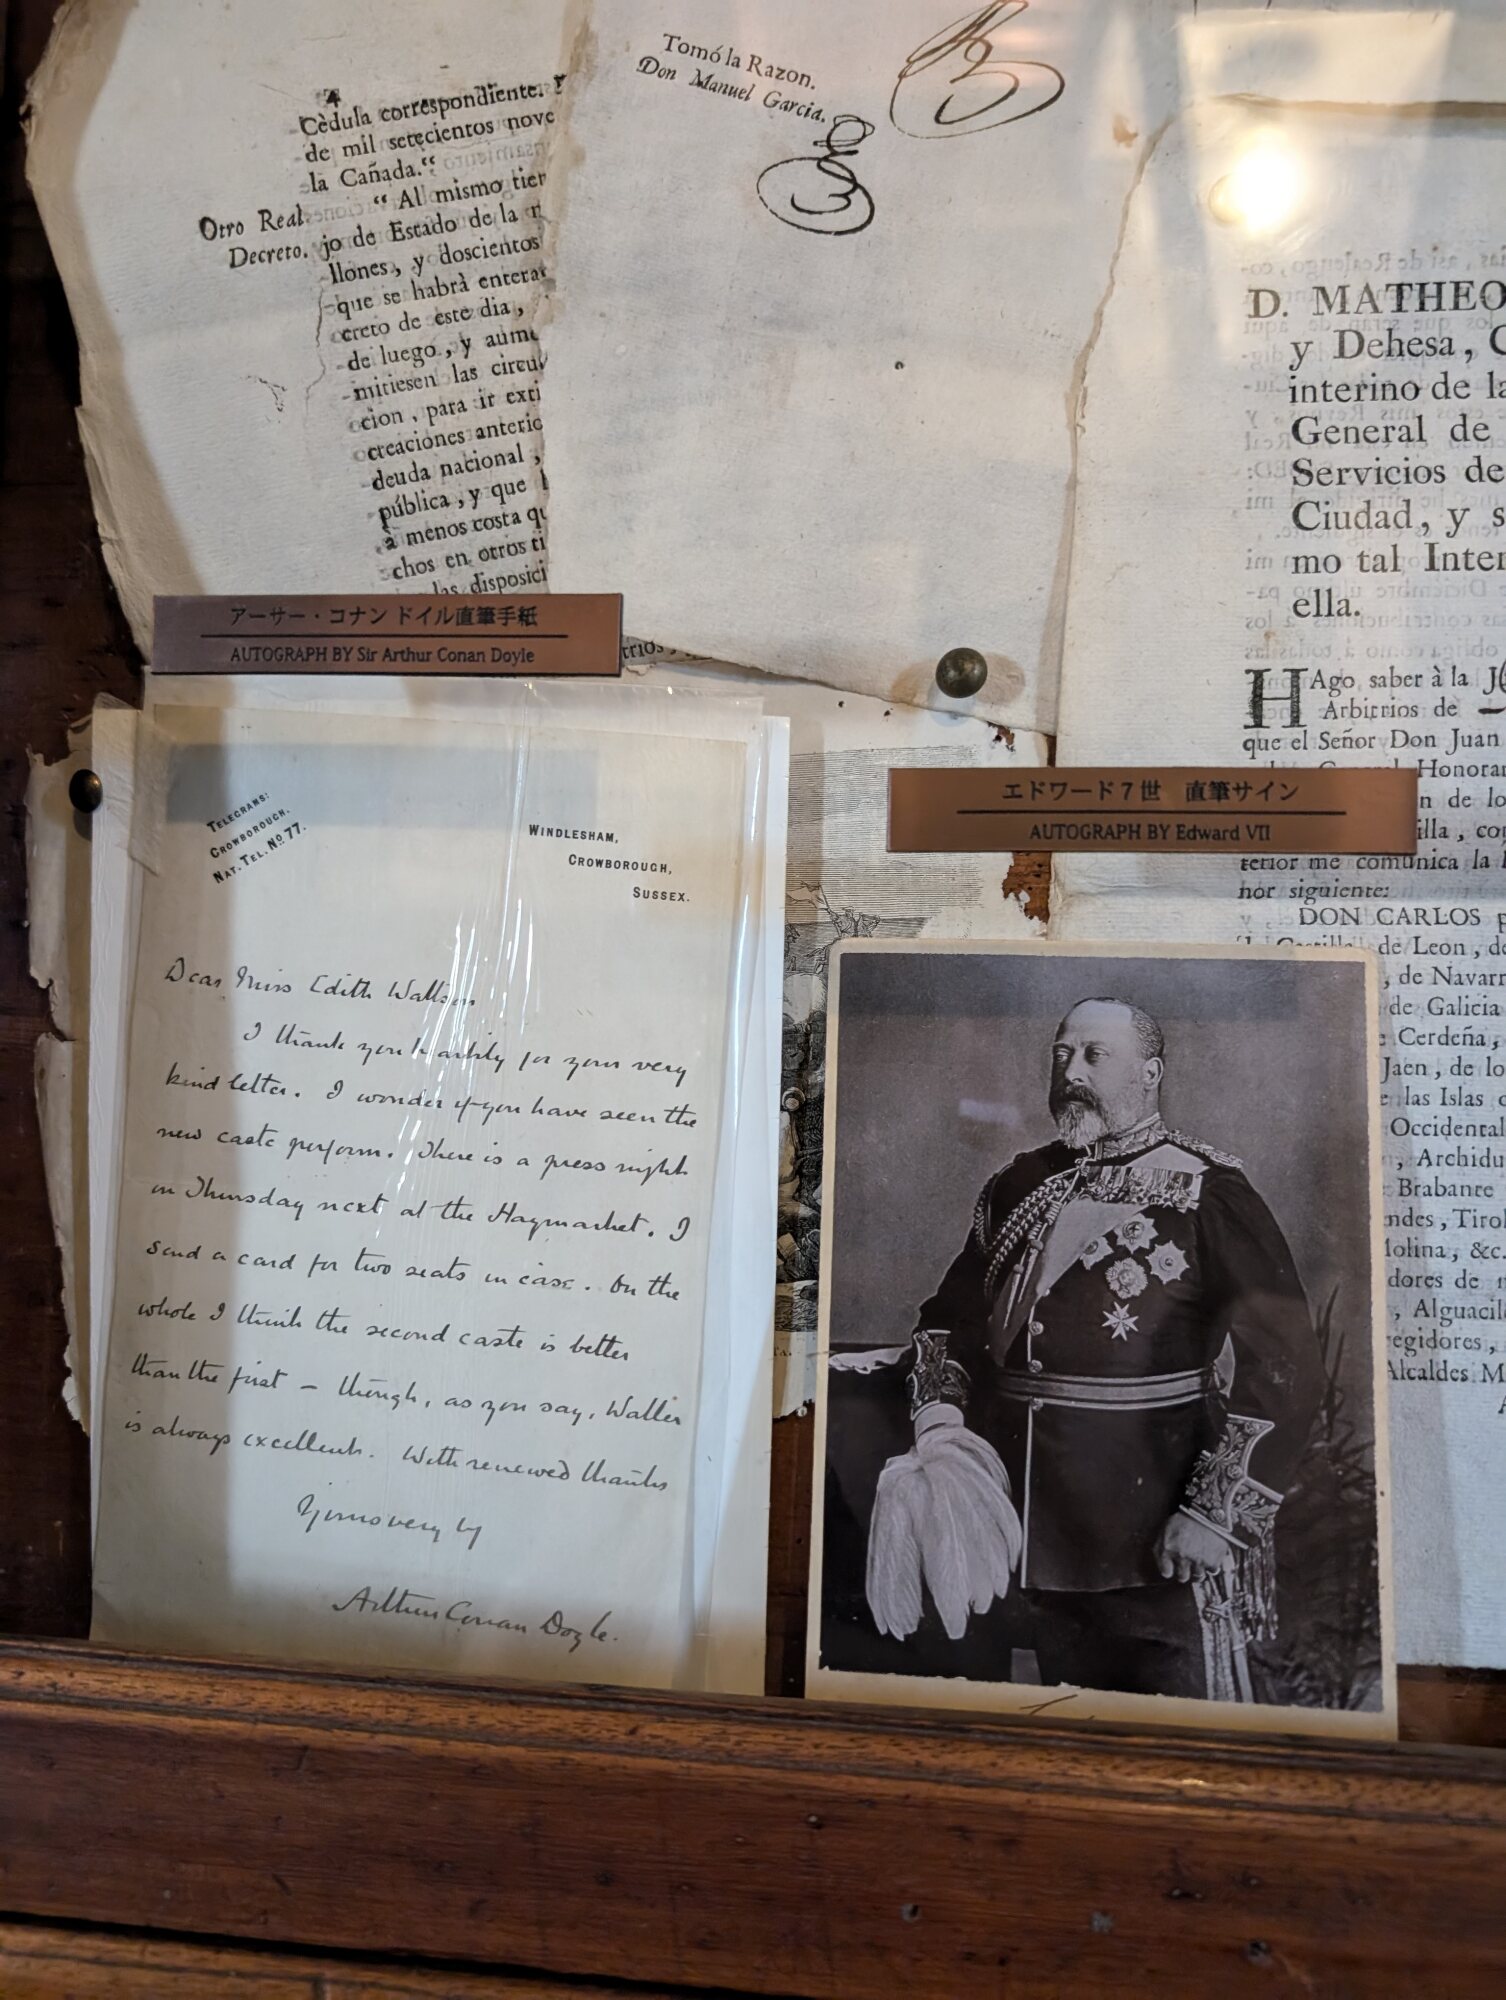 Cèdula correspondiente.
de mil setecientos nove
la Cañada.“
“ Al mismo tier
Otro Real
Decreto.
jo de Estado de la
llones, y doscientos
que se habrà entera
creto de este dia,
de luego, y aume
mitiesen las circul
cion, para ir exti
creaciones anterio
deuda nacional,
pública, y que
à menos costa qu
chos en otros ti
las disposici
Tomó la Razon.
Don Manuel Garcia.
D. MATHEO
y Dehesa, C
interino de la
General de
Servicios de
Ciudad, y s
mo tal Inter
ella.
HAgo saber à la
Arbitrios de
que el Señor Don Juan
Honorar
n de lo
illa, co
terior me comunica la
nor siguiente:
DON CARLOS p
Castilla, de Leon, de
, de Navarr
de Galicia
Cerdeña,
Jaen, de lo
las Islas
Occidental
, Archidu
Brabante
ndes, Tirol
Molina, &c.
dores de
, Alguacil
egidores,
Alcaldes M
アーサー・コナン ドイル直筆手紙
AUTOGRAPH BY Sir Arthur Conan Doyle
TELEGRAMS:
CROWBOROUGH.
NAT. TEL. No 77.
WINDLESHAM,
CROWBOROUGH,
SUSSEX.
Dear Miss Edith Watson
I thank you heartily for your very
kind letter. I wonder if you have seen the
new caste perform. There is a press night
on Thursday next at the Haymarket. I
send a card for two seats in case. On the
whole I think the second caste is better
than the first — though, as you say, Waller
is always excellent. With renewed thanks
Yours very ty
Arthur Conan Doyle.
エドワード7世 直筆サイン
AUTOGRAPH BY Edward VII